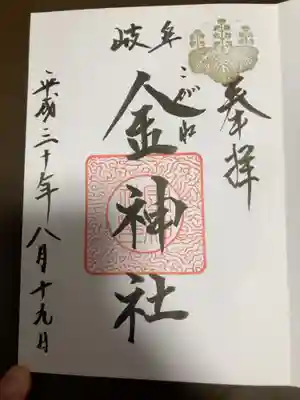 奉拝
岐阜
こがね
金神社
平成三十年八月十九日